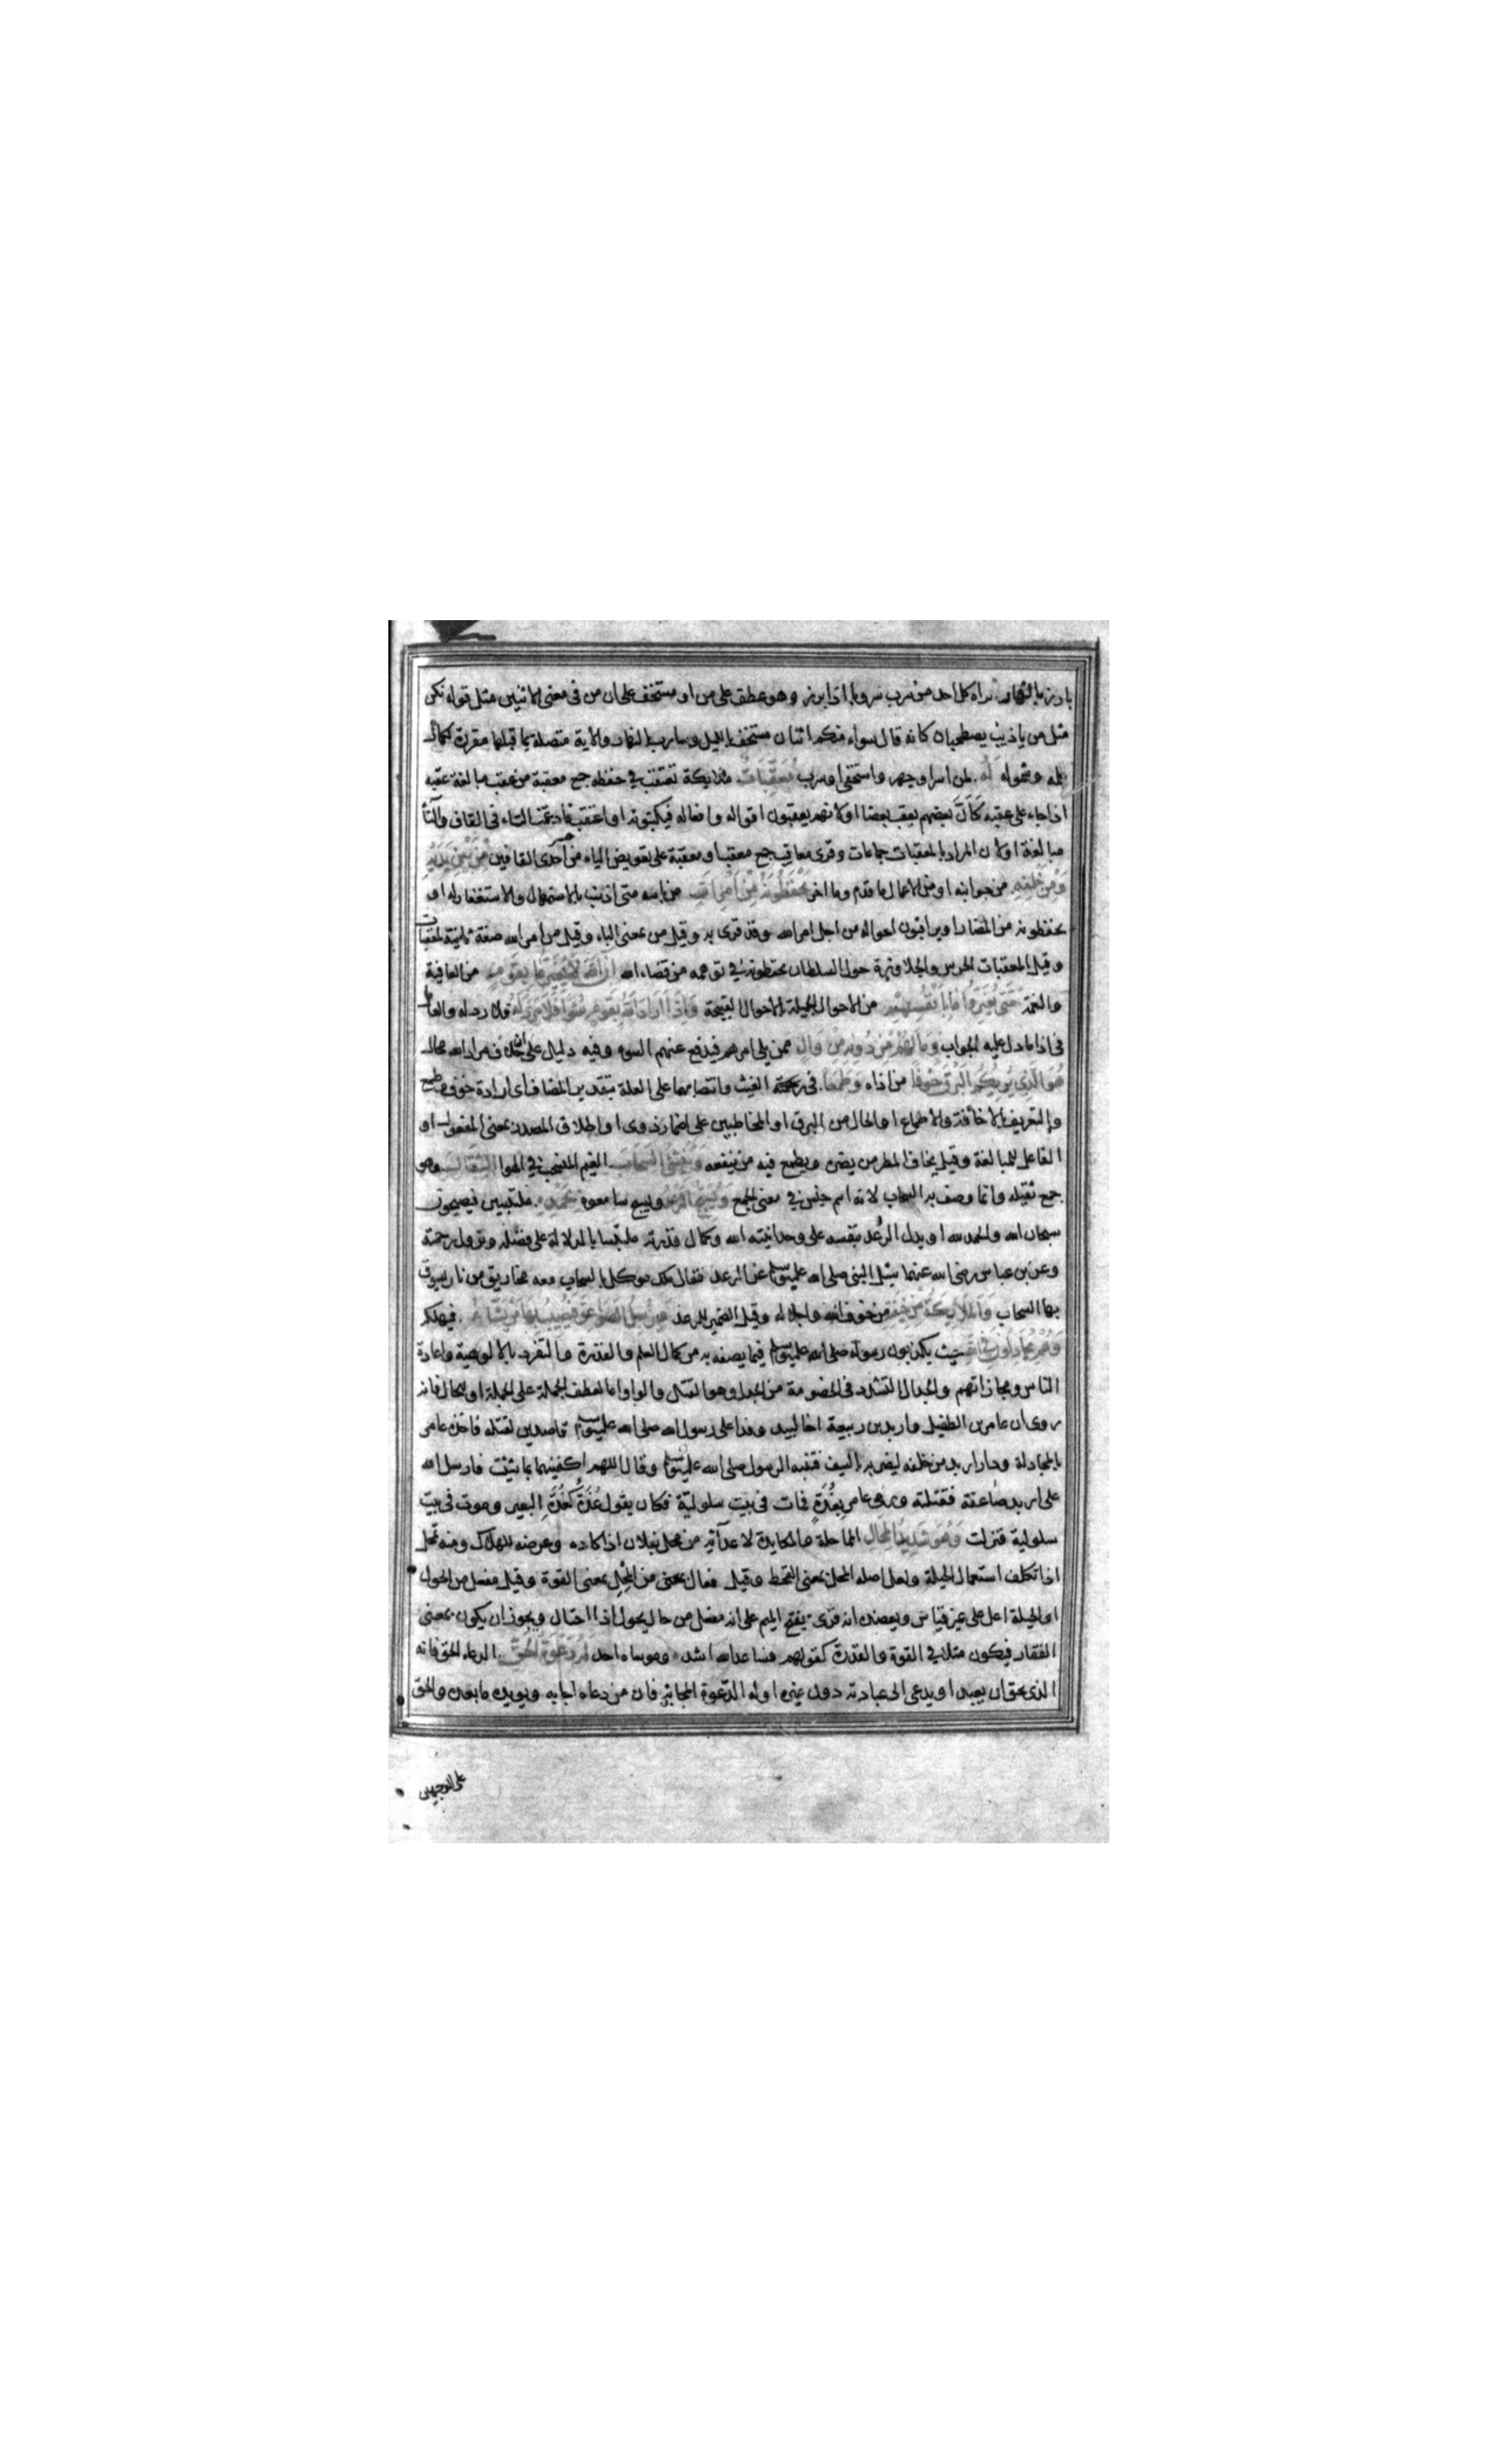 بارز بالنهار يراه كل احد من سرب سروبا اذا برز وهو عطف على من او مستخف على ان من فى معنى الاثنين مثل قوله نكن
مثل من ياذيب يصطحبان كانه قال سواء منكم اثنان مستخف بالليل وسارب بالنهار والاية متصلة بما قبلها مقررة لكمال
علمه وشموله له لمن اسر او جهر واستخفى او سرب معقبات ملايكة تعتقب في حفظه جمع معقبة من عقب مبالغة عقبه
اذا جاء على عقبه كان بعضهم يعقب بعضا او لانهم يعقبون اقواله وافعاله فيكتبونه او اعتقب فادغمت التاء فى القاف والتاء
مبالغة او لان المراد بالمعقبات جماعات وقرى معاقيب جمع معقب او معقبة على تعويض الياء من احدى القافين من بين يديه
ومن خلفه من جوانبه او من الاعمال ما قدم وما اخر يحفظونه من امر الله من باسه متى اذنب بالاستمهال والاستغفار له او
يحفظونه من المضار او يراقبون احواله من اجل امر الله وقد قرى به وقيل من بمعنى الباء وقيل من امر الله صفة ثانية لمعقبات
وقيل المعقبات الحرس والجلاوزة حول السلطان يحفظونه في توهمه من قضاء الله ان الله لا يغير ما بقوم من العافية
والنعمة حتى يغيروا ما بانفسهم من الاحوال الجميلة بالاحوال القبيحة واذا اراد الله بقوم سوءا فلا مرد له فلا رد له والعامل
فى اذا ما دل عليه الجواب وما لهم من دونه من وال ممن يلى امرهم فيدفع عنهم السوء وفيه دليل على ان خلاف مراد الله محال
هو الذي يريكم البرق خوفا من اذاه وطمعا فى الغيث وانتصابهما على العلة بتقدير المضاف اى ارادة خوف وطمع
او التعريف الاخافة والاطماع او الحال من البرق او المخاطبين على اضمار ذوى او اطلاق المصدر بمعنى المفعول او
الفاعل للمبالغة وقيل يخاف المطر من يضره ويطمع فيه من ينفعه وينشئ السحاب الغيم المنسحب في الهوا الثقال وهو
جمع ثقيلة وانما وصف به السحاب لانه اسم جنس في معنى الجمع ويسبح الرعد ويسبح سامعوه بحمده ملتبسين فيصيحون
سبحان الله والحمد لله او يدل الرعد بنفسه على وحدانيته الله وكمال قدرته ملتبسا بالدلالة على فضله ونزول رحمته
وعن بن عباس رضى الله عنهما سئل النبى صلى الله عليه وسلم عن الرعد فقال ملك موكل بالسحاب معه مخاريق من نار يسوق
بها السحاب والملايكة من خيفته من خوف الله واجلاله وقيل الضمير للرعد ويرسل الصواعق فيصيب بها من يشاء فيهلكه
وهم يجادلون في الله حيث يكذبون رسوله صلى الله عليه وسلم فيما يصفه به من كمال العلم والقدرة والتفرد بالالوهية واعادة
الناس ومجازاتهم والجدال التشدد فى الخصومة من الجدل وهو الفتل والواو اما لعطف الجملة على الجملة او للحال فانه
روى ان عامر بن الطفيل واربد بن ربيعة اخا لبيد وفدا على رسول الله صلى الله عليه وسلم قاصدين لقتله فاخذه عامر
بالمجادلة ودار اربد من خلفه ليضربه بالسيف فتنبه الرسول صلى الله عليه وسلم وقال اللهم اكفنيهما بما شئت فارسل الله
على اربد صاعقة فقتلته ورمى عامر بغدة فمات فى بيت سلولية فكان يقول غدة كغدة البعير وموت فى بيت
سلولية فنزلت وهو شديد المحال المماحلة والمكايدة لاعدائه من محل بفلان اذا كاده وعرضه للهلاك ومنه تمحل
اذا تكلف استعمال الحيلة ولعل اصله المحل بمعنى القحط وقيل فعال بمعنى من المحل بمعنى القوة وقيل مفعل من الحول
او الحيلة اعل على غير قياس ويعضده انه قرى بفتح الميم على انه مفعل من حال يحول اذا احتال ويجوز ان يكون بمعنى
الفقار فيكون مثلا في القوة والقدرة كقولهم فساعد الله اشد وموساه احد له دعوة الحق الدعاء الحق فانه
الذى يحق ان يعبد او يدعى الى عبادته دون غيره او له الدعوة المجابة فان من دعاه اجابه ويويده ما بعده والحق
على الوجهين